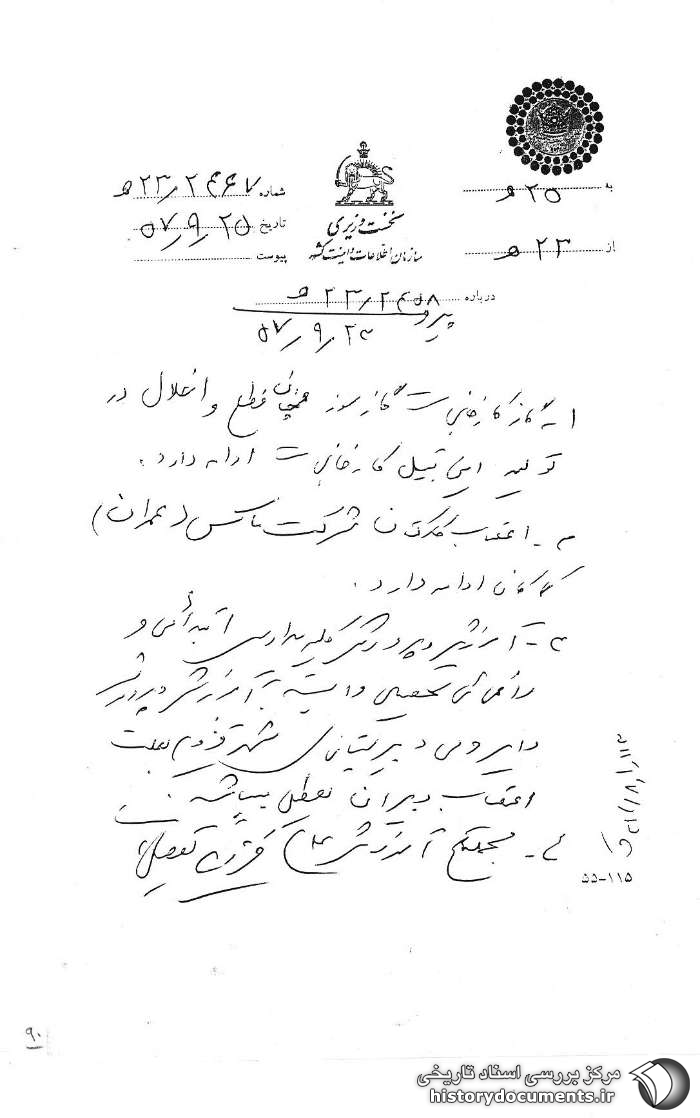 به ۲۵ هـ
از ۲۳ هـ
نخست وزیری
سازمان اطلاعات و امنیت کشور
شماره ۲۳/۲۴۶۷ هـ
تاریخ ۵۷/۹/۲۵
پیوست
درباره ۲۳/۲۴۵۸ هـ
پیرو
۵۷/۹/۲۳
۱ـ گاز کارخانجات گاز سوز همچنان قطع و اخلال در
تولید این قبیل کارخانجات ادامه دارد.
۲ـ اعتصاب کارکنان شرکت تاکس (عمران)
کماکان ادامه دارد.
۳ـ آموزش و پرورش کلیه مدارس ابتدائی و
راهنمائی تحصیلی وابسته به آموزش و پرورش
دایر ولی دبیرستانهای شهر قزوین بعلت
اعتصاب دبیران تعطیل میباشد.
۴ـ مجتمع آموزش
۵۵-۱۱۵
۹۰
مرکز بررسی اسناد تاریخی
historydocuments.ir